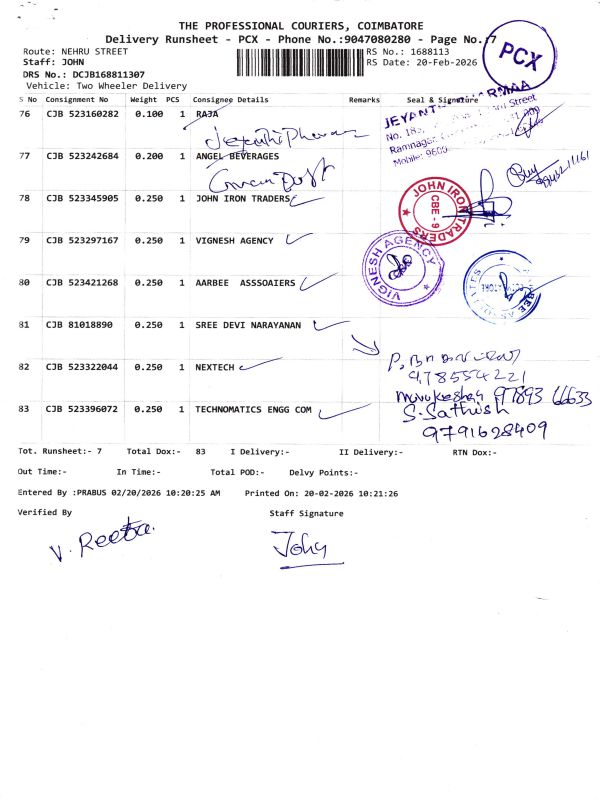 THE PROFESSIONAL COURIERS, COIMBATORE
Delivery Runsheet - PCX - Phone No.:9047080280 - Page No.:7
PCX
Route: NEHRU STREET
RS No.: 1688113
Staff: JOHN
RS Date: 20-Feb-2026
DRS No.: DCJB168811307
Vehicle: Two Wheeler Delivery
S No Consignment No Weight PCS Consignee Details Remarks Seal & Signature
76 CJB 523160282 0.100 1 RAJA
77 CJB 523242684 0.200 1 ANGEL BEVERAGES
Ramnagar
Mobile: 9600
78 CJB 523345905 0.250 1 JOHN IRON TRADERS
JOHN IRON TRADERS
CBE - 9
79 CJB 523297167 0.250 1 VIGNESH AGENCY
VIGNESH AGENCY
80 CJB 523421268 0.250 1 AARBEE ASSSOAIERS
81 CJB 81018890 0.250 1 SREE DEVI NARAYANAN
82 CJB 523322044 0.250 1 NEXTECH
978554221
Murukeshan 97893 66633
83 CJB 523396072 0.250 1 TECHNOMATICS ENGG COM
S. Sathish
9791628409
Tot. Runsheet:- 7 Total Dox:- 83 I Delivery:- II Delivery:- RTN Dox:-
Out Time:- In Time:- Total POD:- Delvy Points:-
Entered By :PRABUS 02/20/2026 10:20:25 AM Printed On: 20-02-2026 10:21:26
Verified By Staff Signature
V. Reeta John